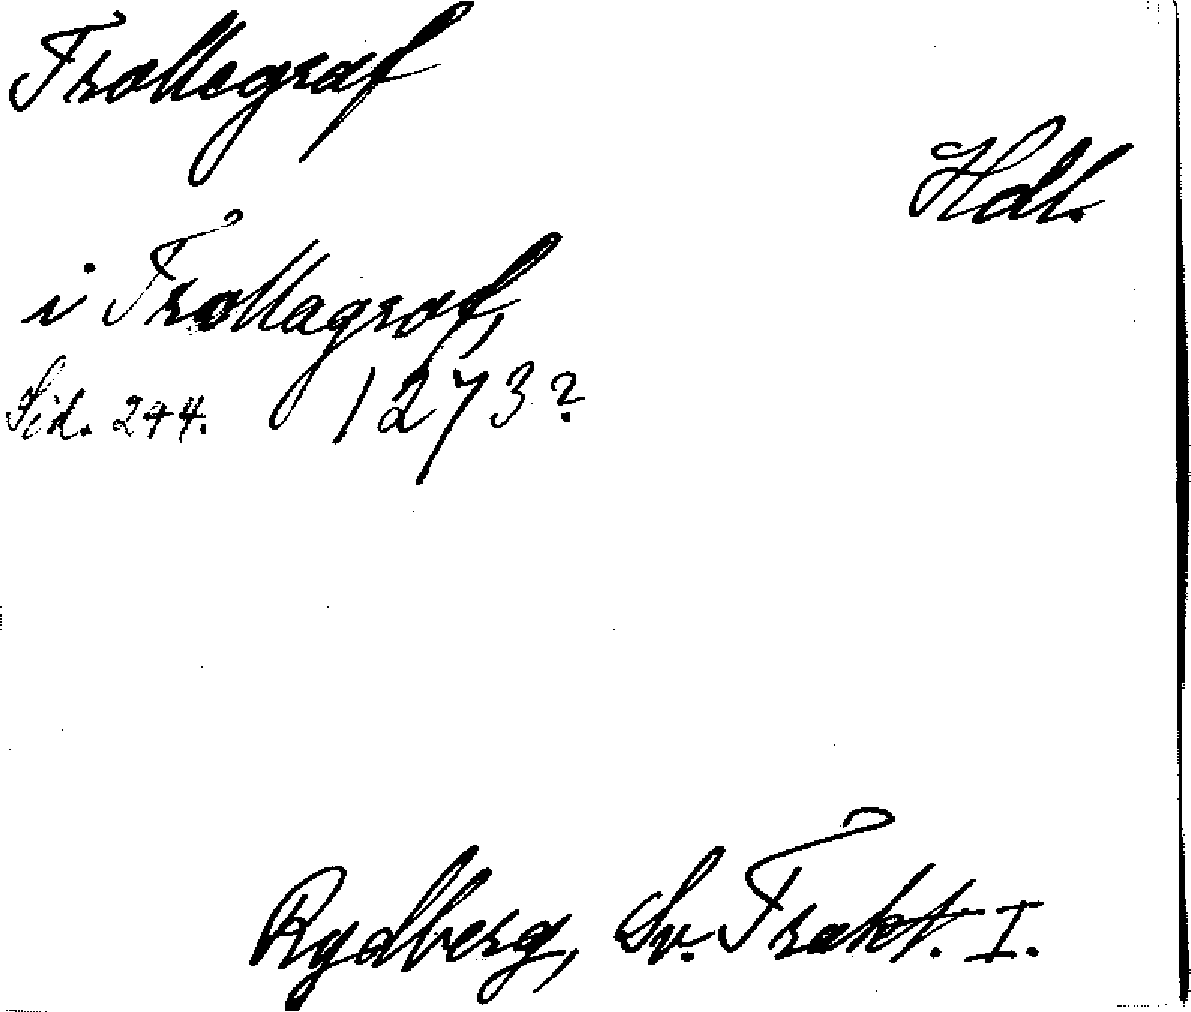 Trollegraf
Hdl.
i Trollagraf,
Sid. 244. 1273?
Rydberg, Sv. Trakt. I.